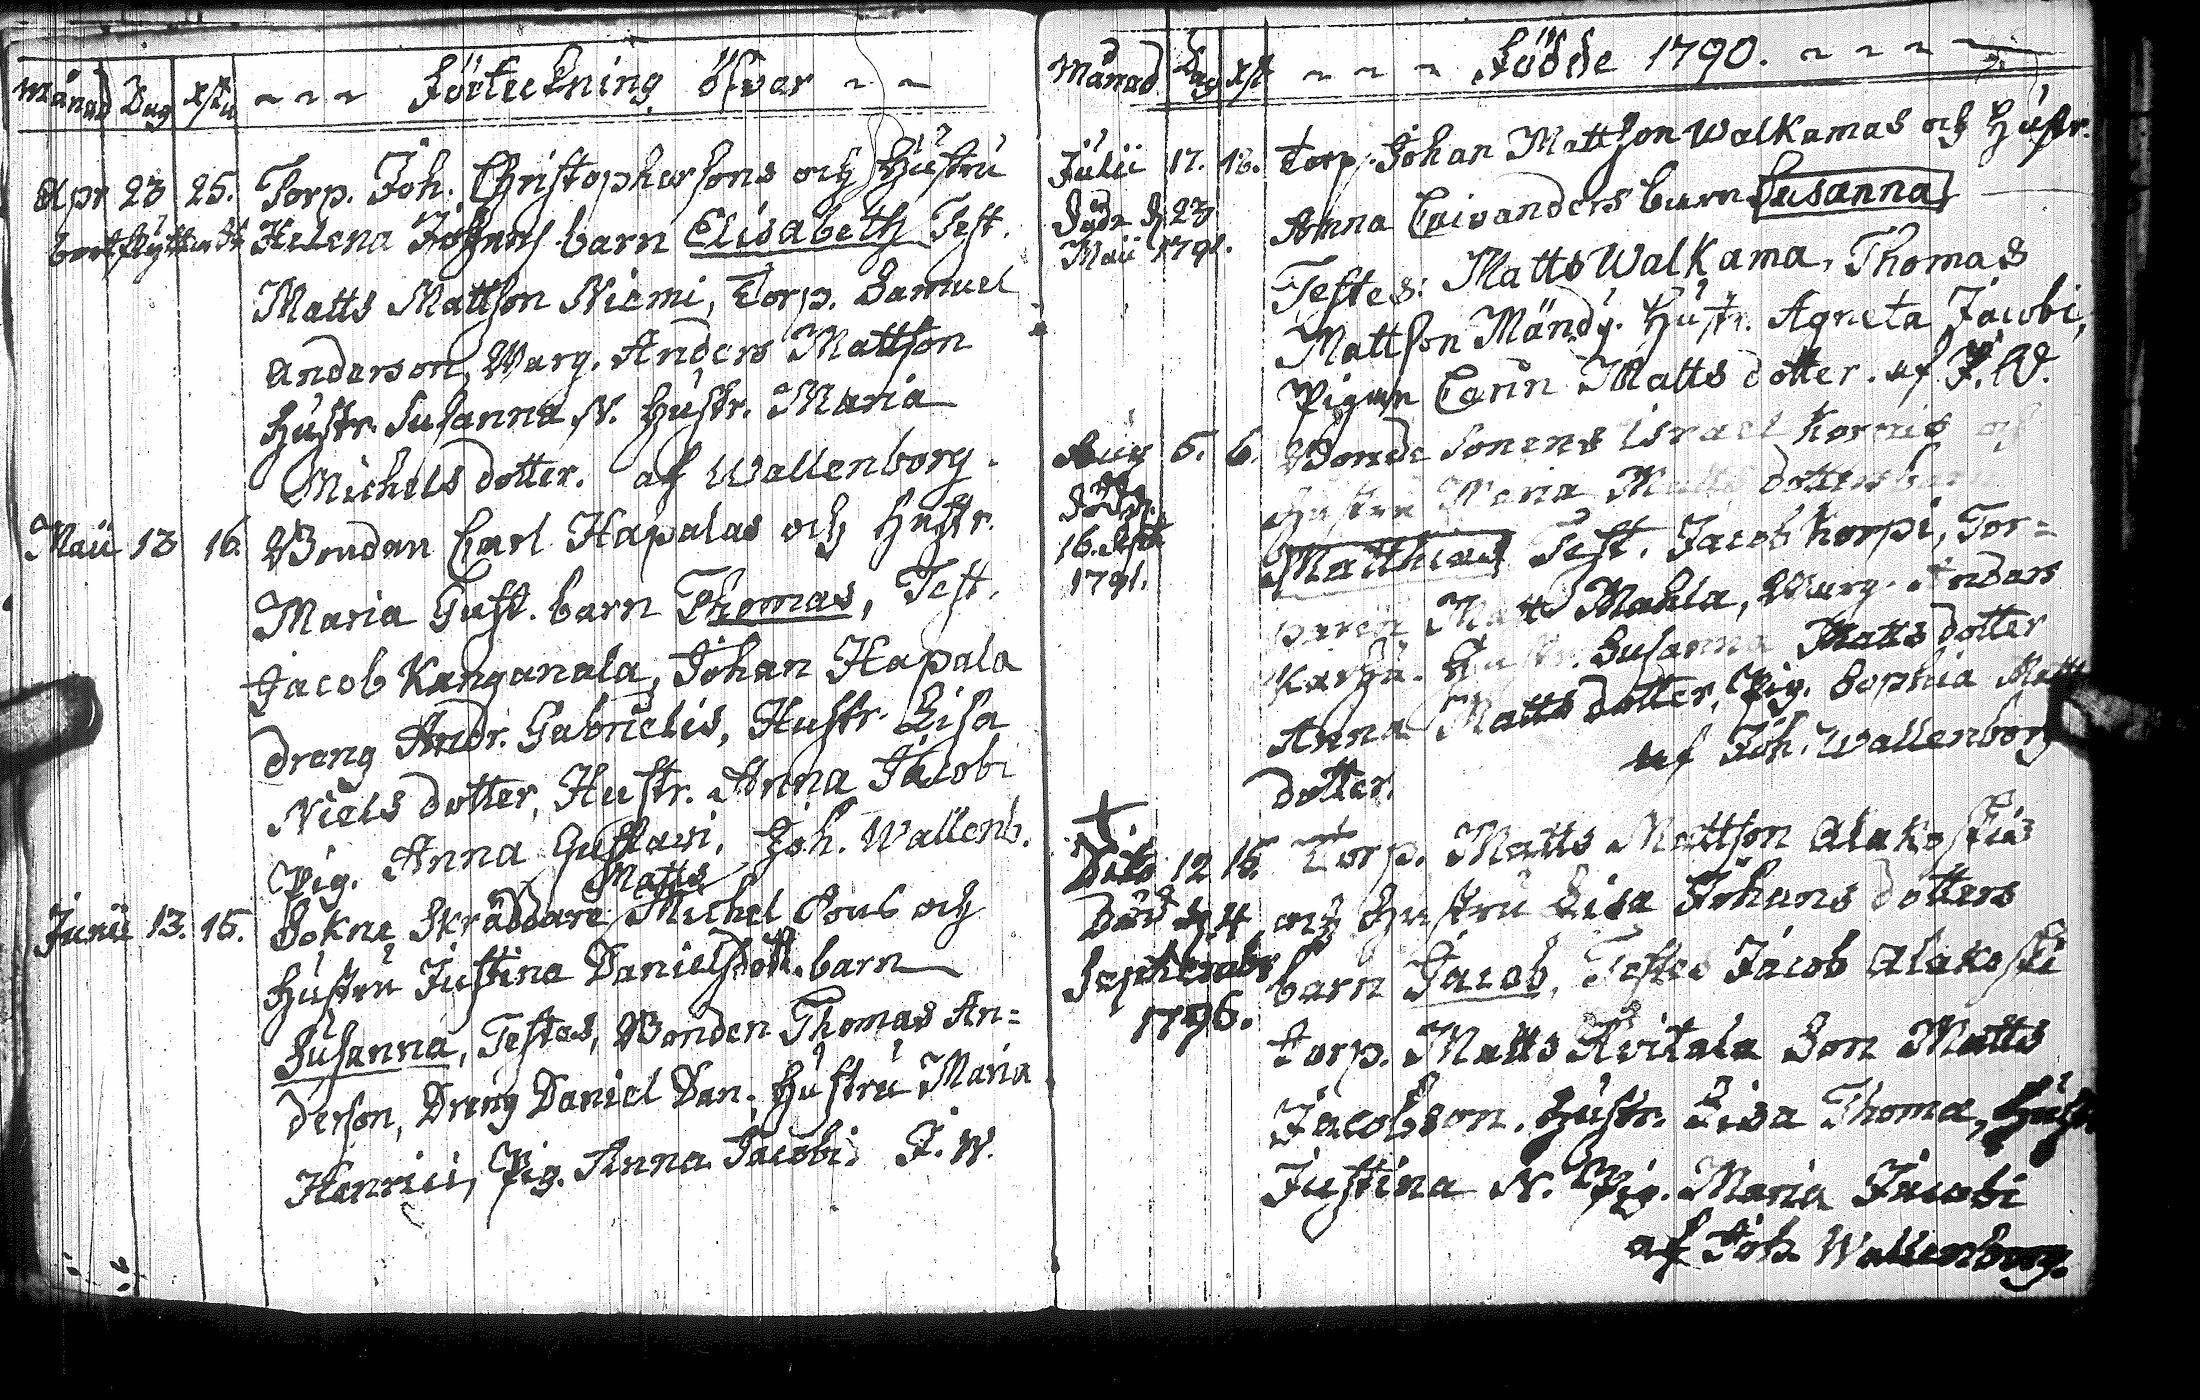 Månad Dag xstn ~ ~ ~ Förteckning öfver ~ ~
Apr 23 25. Torp. Joh. Christophersons och Hustru
bortflyttadt Helena Johans barn Elisabeth Test.
Matts Mattson Niemi, Torp. Samuel
Anderson, Warg. Anders Mattson
Hustr. Susanna N. Hustr. Maria
Michels dotter. af Wallenborg.
Maii 13 16. Bonden Carl Hapalas och Hustr.
Maria Gust. barn Thomas, Test.
Jacob Kanganala, Johan Hapala
dreng Andr. Gabrielis, Hustr. Lisa
Niels dotter, Hustr. Anna Jacobi
Pig. Anna Gustavi. Joh. Wallenb.
Matts
Junii 13. 15. Sokne Skräddare Michel Pouls och
Hustru Justina Danielsdott. barn
Susanna, Testes, Bonden Thomas An=
derson, Dreng Daniel Dan. Hustru Maria
Henrici, Pig. Anna Jacobi. J. W.
Månad Dag xst ~ ~ ~ Födde 1790. ~ ~ ~ ~
Julii 17. 18. Torp. Johan Mattson Walkamas och Hustr.
Anna barn Susanna
Döde d. 23
Maii 1791.
Testes: Matts Walkama, Thomas
Mattson Mändy. Hustr. Agneta Jacobi,
Pigan Carin Matts dotter. af J. W.
Aug 5. 6. Bonde Sonens Israel Korpis
Hustru Maria Matts dotters barn
16. Sept
1791.
Matthias Test. Jacob Korpi, Tor=
paren Matts Mahla, Warg. Anders
Karhu. Hustr. Susanna Matts dotter
Anna Matts dotter, Pig. Sophia Matts
dotter. af Joh. Wallenborg
Dito 12 15. Torp. Matts Mattson Alakoskis
Död d. 4 och Hustru Lisa Johans dotters
Septembr barn Jacob, Testes Jacob Alakoski
1796.
Torp. Matts Kvitala Son Matts
Jacobson. Hustr. Lisa Thoma, Hustr
Justina N. Pig. Maria Jacobi
af Joh Wallenborg.